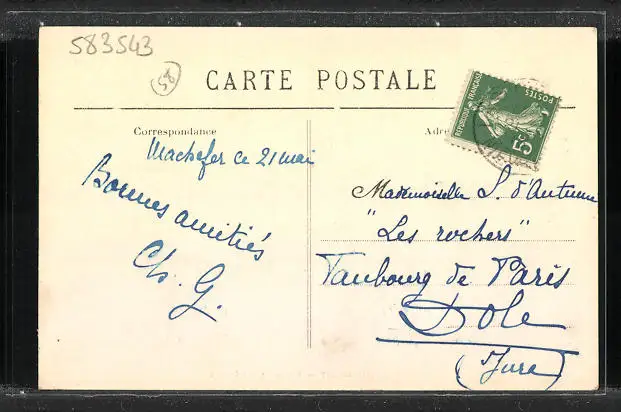 583543
58
CARTE POSTALE
Correspondance
Adre
REPUBLIQUE FRANÇAISE
POSTES
5c
Machefer ce 21 mai
Bonnes amitiés
Ch. G.
Mademoiselle S. d'Autume
"Les rochers"
Faubourg de Paris
Dole
(Jura)